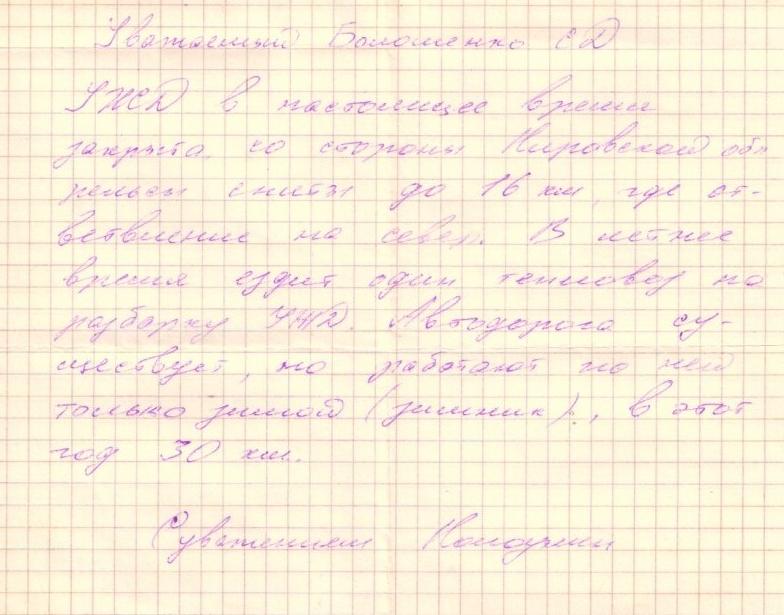 Уважаемый Болошенко СД
УЖД в настоящее время
закрыта, со стороны Кировской обл
рельсы сняты до 16 км, где от-
ветвление на север. В летнее
время ездит один тепловоз на
разборку УЖД. Автодорога су-
ществует, но работают по ней
только зимой (зимник), в этот
год 30 км.
С уважением